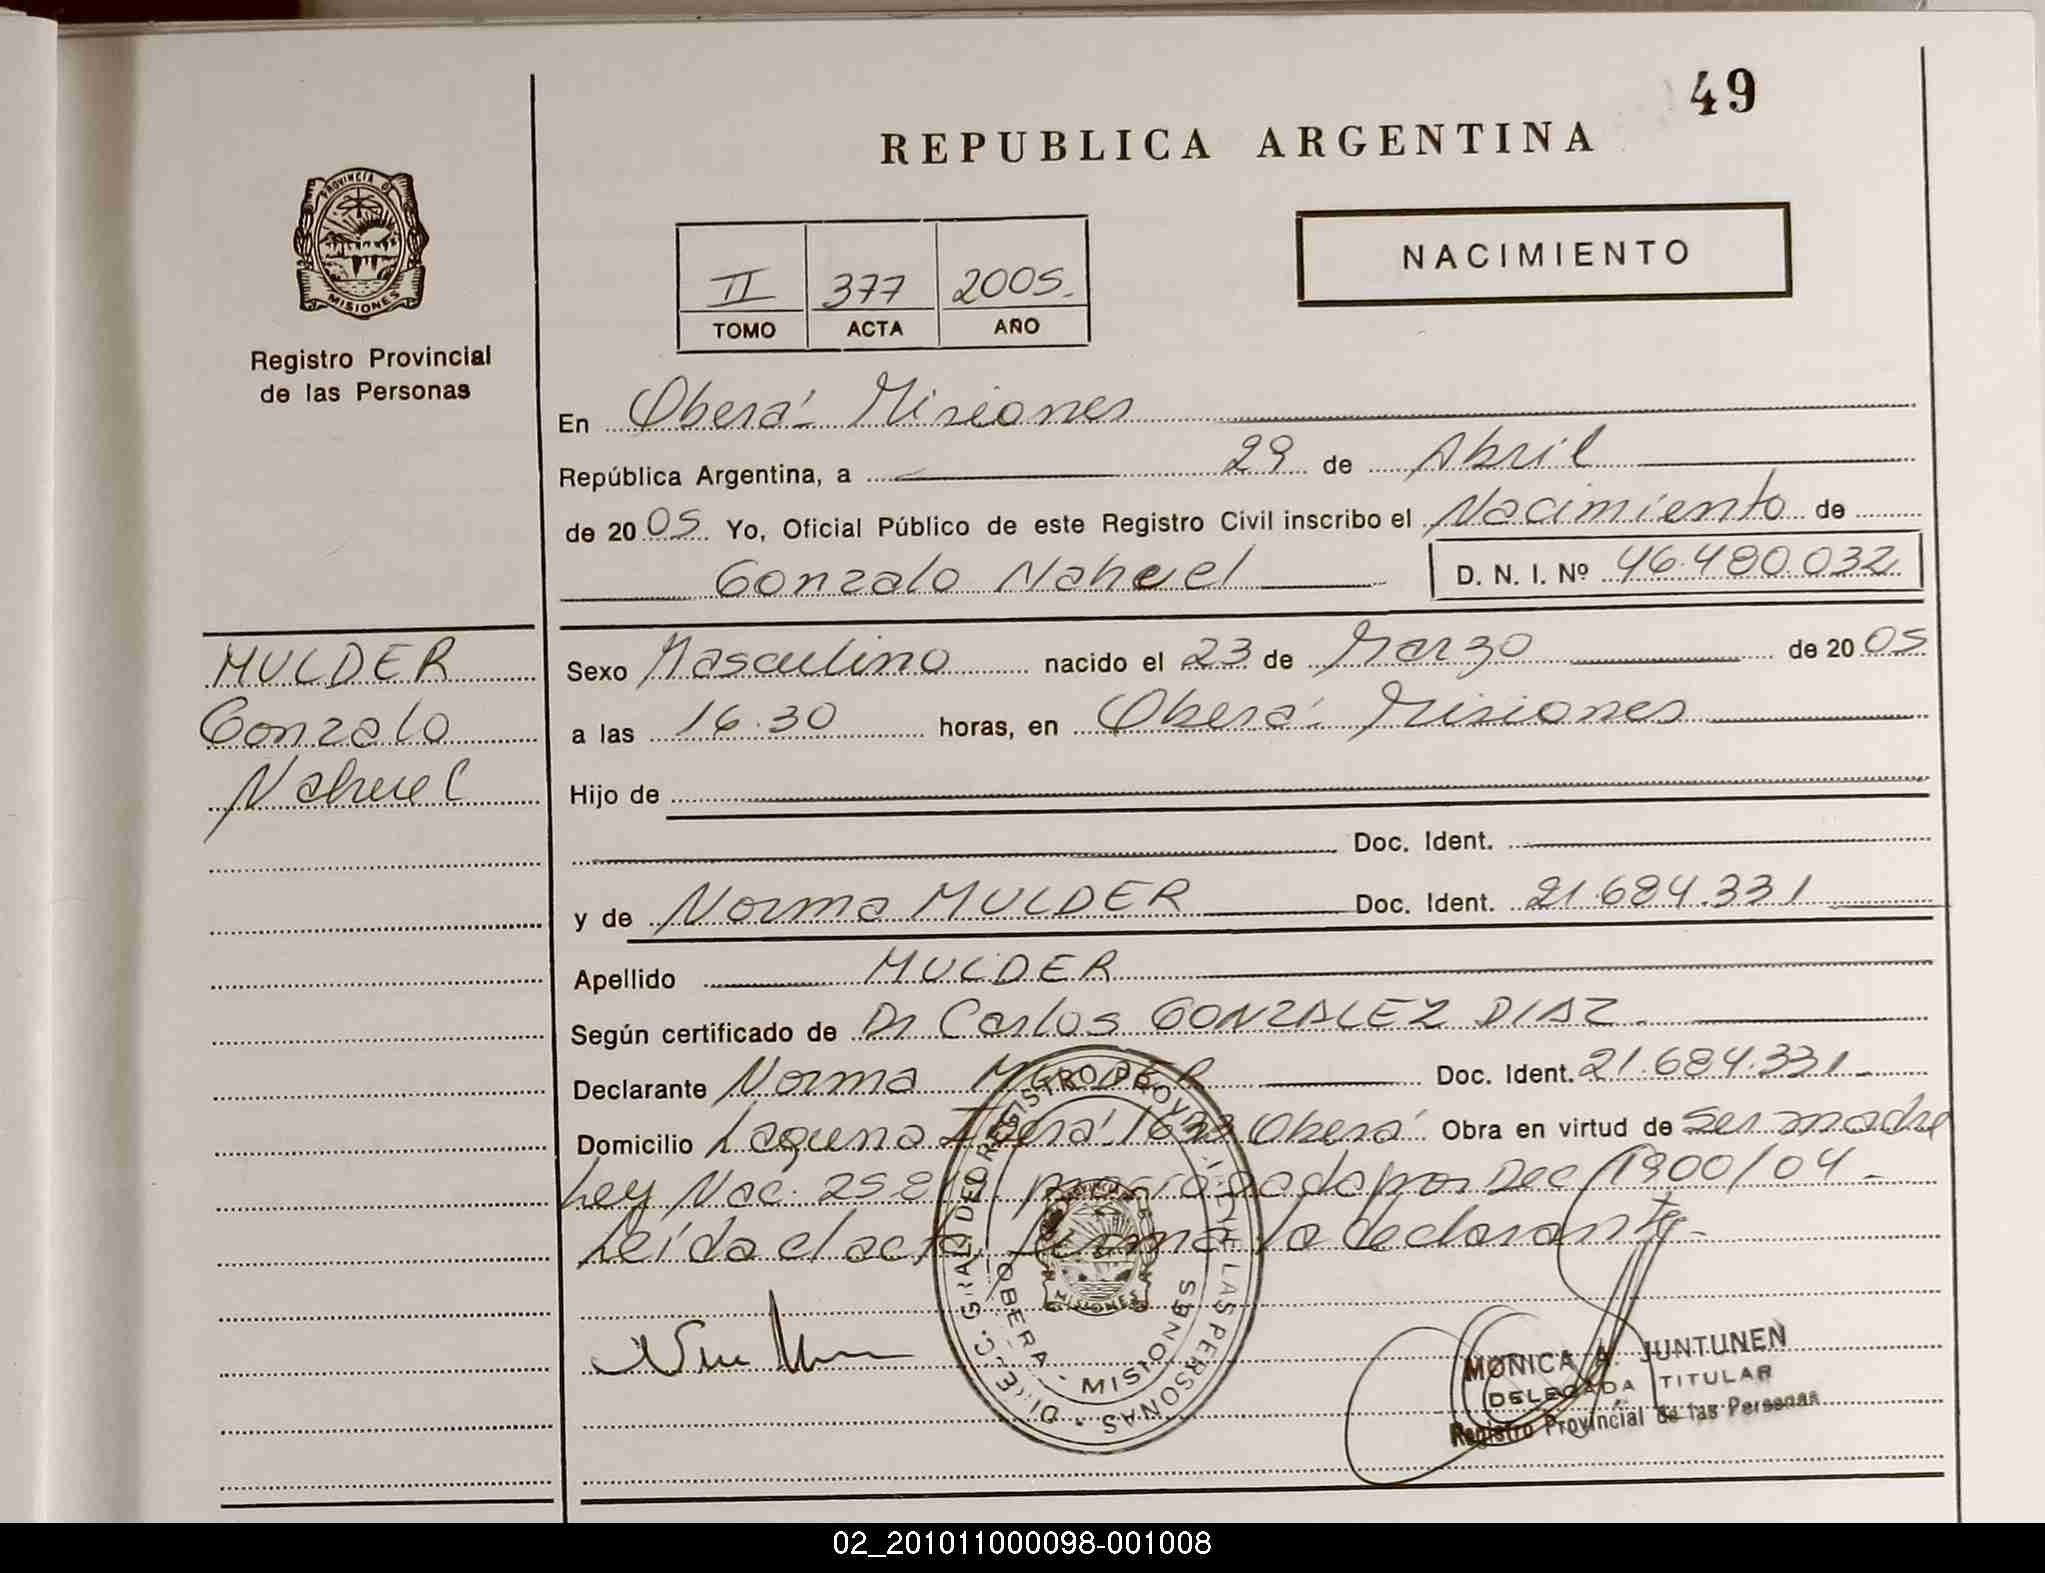 49
REPUBLICA ARGENTINA
PROVINCIA DE
MISIONES
Registro Provincial
de las Personas
NACIMIENTO
II 377 2005.
TOMO ACTA AÑO
En Oberá - Misiones
República Argentina, a 29 de Abril
de 2005 Yo, Oficial Público de este Registro Civil inscribo el Nacimiento de
Gonzalo Nahuel D. N. I. Nº 46.480.032
MULDER
Gonzalo
Nahuel
Sexo Masculino nacido el 23 de Marzo de 2005
a las 16.30 horas, en Oberá - Misiones
Hijo de
Doc. Ident.
y de Norma MULDER Doc. Ident. 21.684.331
Apellido MULDER
Según certificado de Dr Carlos GONZALEZ DIAZ
Declarante Norma MULDER Doc. Ident. 21.684.331
Domicilio Laguna Iberá 1633 Oberá Obra en virtud de ser madre
Ley Nac. prorrogada por Dec 1900/04 -
Leída el acta, firma la declarante -
DIRECC. GRAL DEL REGISTRO DE PROVINCIAL DE LAS PERSONAS
OBERA - MISIONES
MISIONES
MONICA A. JUNTUNEN
DELEGADA TITULAR
Registro Provincial de las Personas
02_201011000098-001008